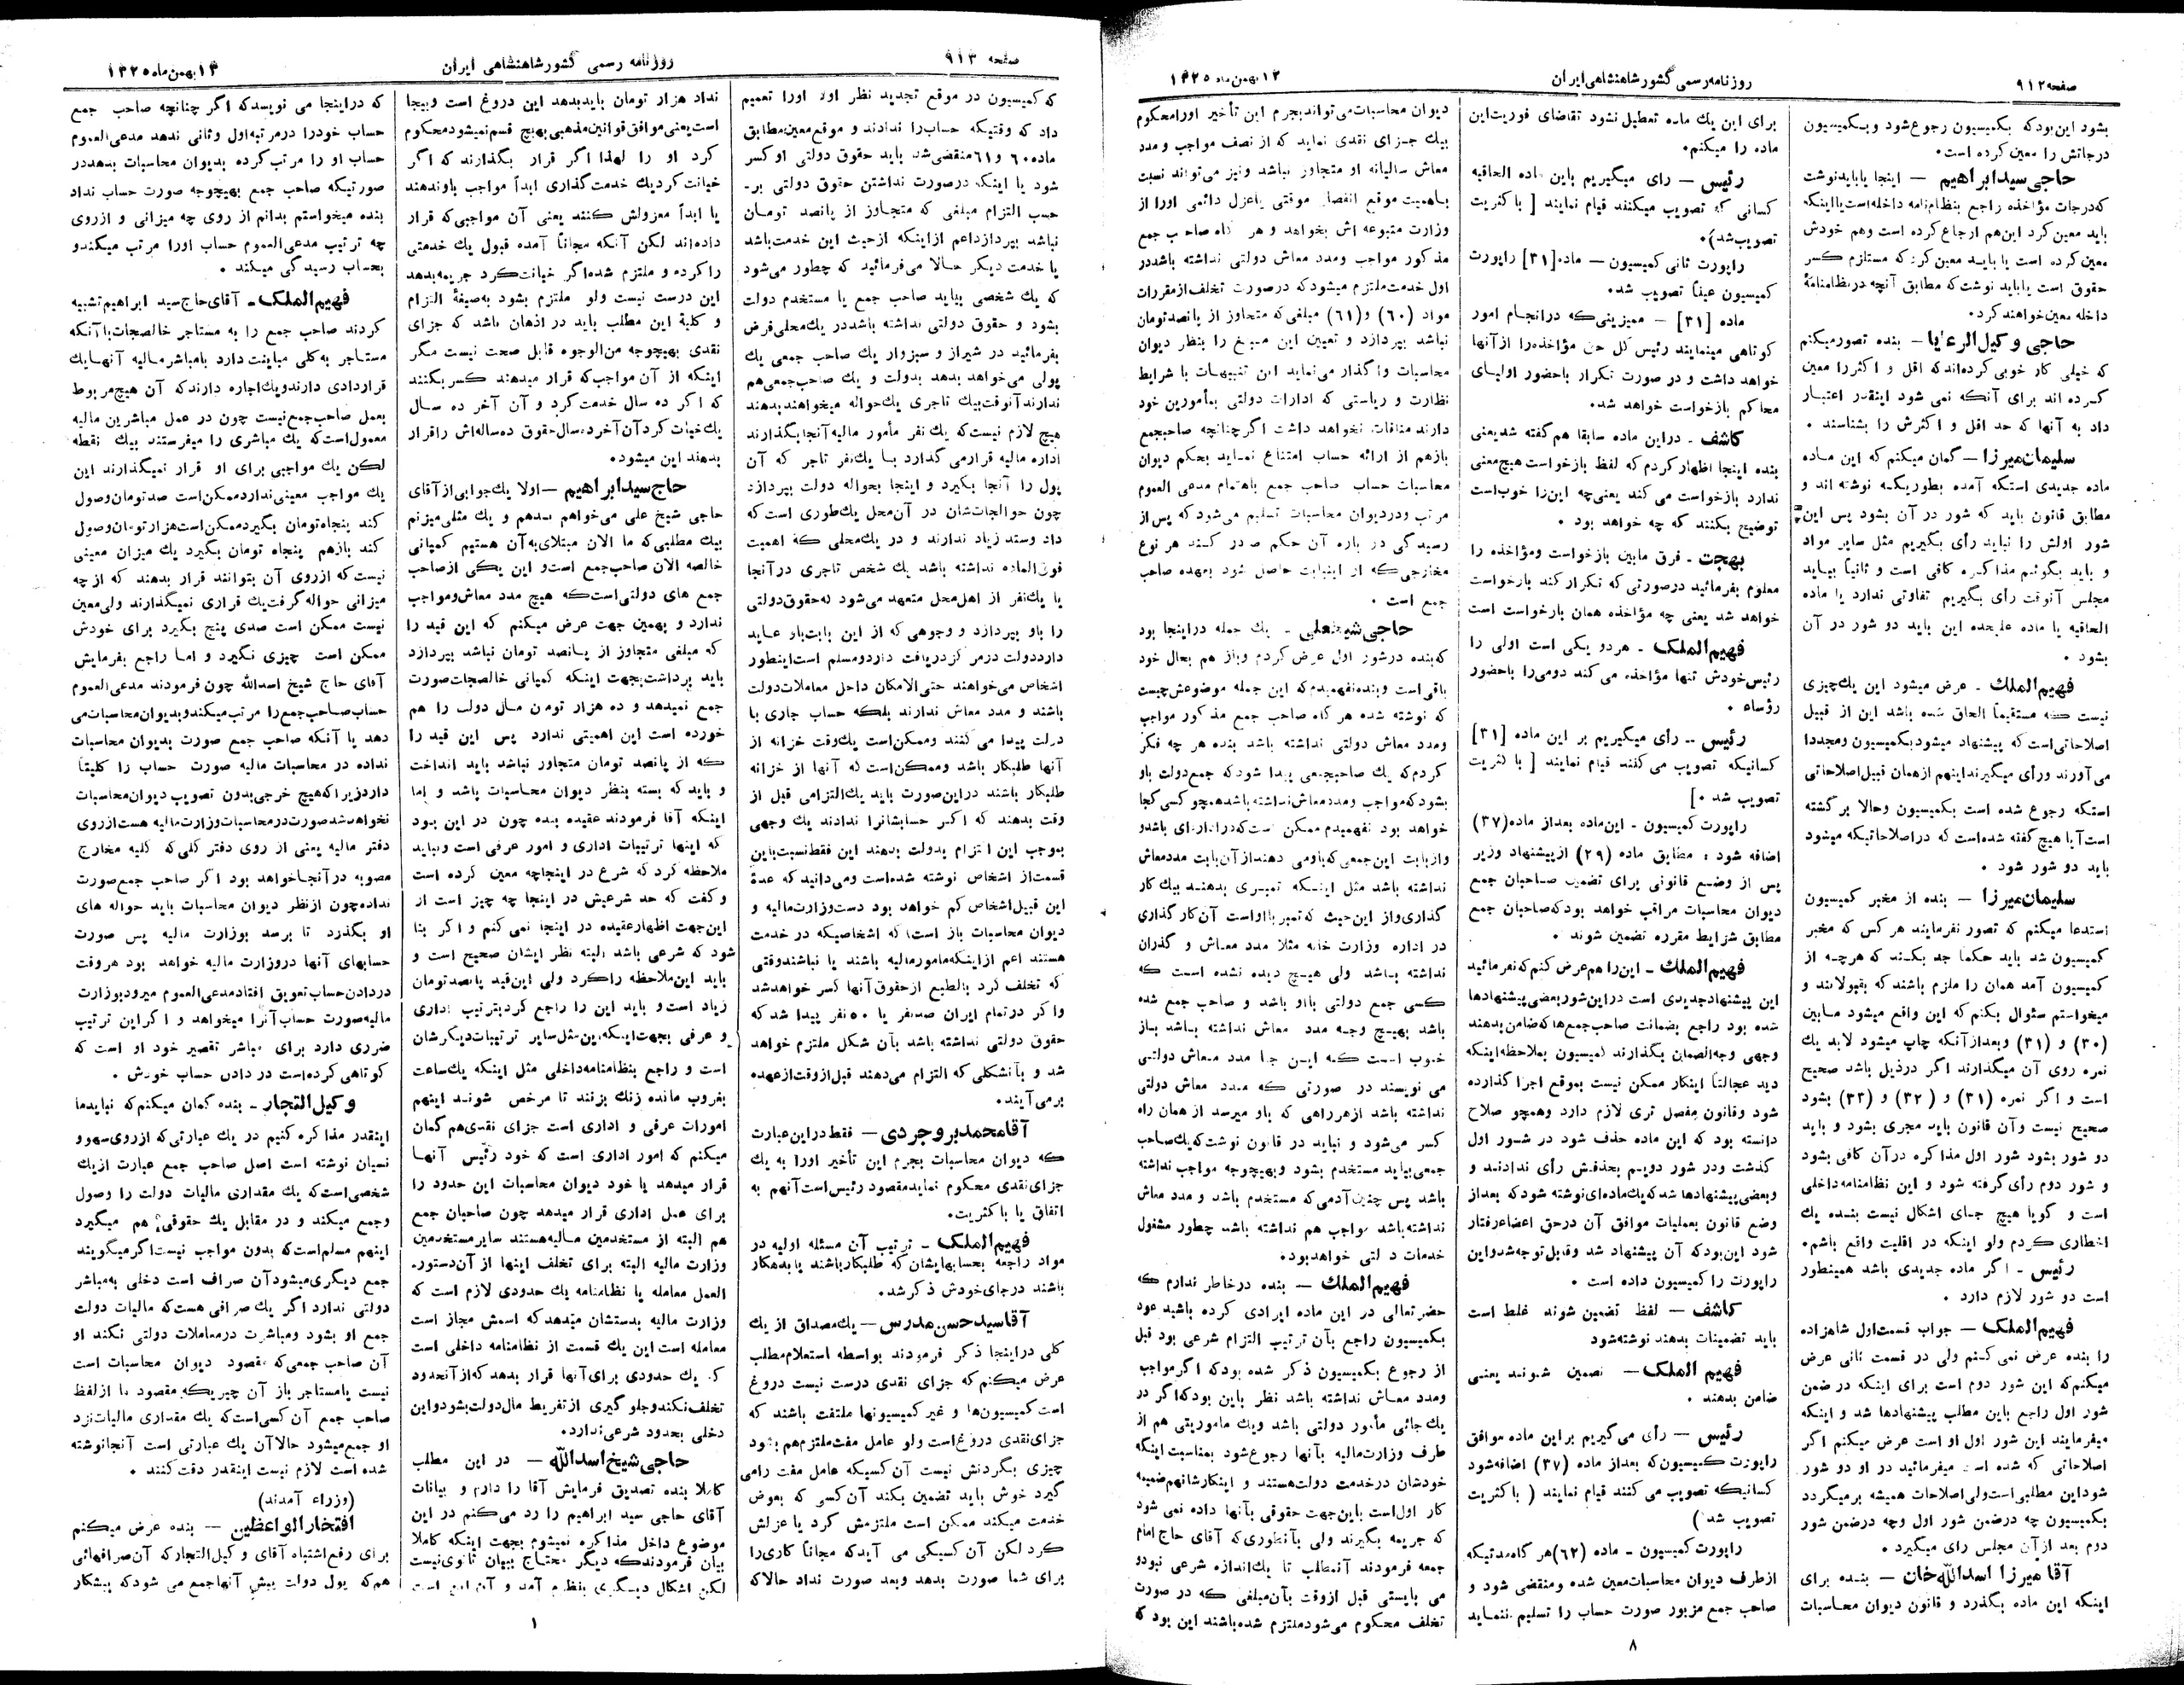 صفحه ۹۱۲
روزنامه رسمی کشور شاهنشاهی ایران
۱۳ بهمن ماه ۱۳۲۵
بشود این بود که بکمیسیون رجوع شود و بکمیسیون
درجاتش را معین کرده است.
حاجی سید ابراهیم — اینجا یا باید نوشت
که درجات مؤاخذه راجع بنظامنامه داخله است یا اینکه
باید معین کرد این هم ارجاع کرده است وهم خودش
معین کرده است یا باید معین کرد که مستلزم کسر
حقوق است یا باید نوشت که مطابق آنچه در نظامنامهٔ
داخله معین خواهند کرد.
حاجی وکیل الرعایا — بنده تصور میکنم
که خیلی کار خوبی کرده اند که اقل و اکثر را معین
کرده اند برای آنکه نمی شود اینقدر اعتبار
داد به آنها که حد اقل و اکثرش را بشناسند .
سلیمان میرزا — گمان میکنم که این ماده
ماده جدیدی استکه آمده بطوریکه نوشته اند و
مطابق قانون باید که شور در آن بشود پس این
شور اولش را نباید رأی بگیریم مثل سایر مواد
و باید بگوئیم مذاکره کافی است و ثانیاً بیاید
مجلس آنوقت رأی بگیریم تفاوتی ندارد یا ماده
الحاقیه یا ماده علیحده این باید دو شور در آن
بشود .
فهیم الملک ـ عرض میشود این یك چیزی
نیست که مستقیماً الحاق شده باشد این از قبیل
اصلاحاتی است که پیشنهاد میشود بکمیسیون ومجددا
می آورند ورأی میگیرند اینهم از همان قبیل اصلاحاتی
استکه رجوع شده است بکمیسیون وحالا برگشته
است آیا هیچ گفته شده است که در اصلاحاتیکه میشود
باید دو شور شود .
سلیمان میرزا — بنده از مخبر کمیسیون
استدعا میکنم که تصور نفرمایند هر کس که مخبر
کمیسیون شد باید حکماً جد بکند که هرچه از
کمیسیون آمد همان را ملزم باشند که بقبولانند و
میخواستم سئوال بکنم که این واقع میشود مابین
(۳۰) و (۳۱) وبعد از آنکه چاپ میشود لابد یك
نمره روی آن میگذارند اگر در ذیل باشد صحیح
است و اگر نمره (۳۱) و (۳۲) و (۳۳) بشود
صحیح نیست وآن قانون باید مجری بشود و باید
دو شور بشود شور اول مذاکره در آن کافی بشود
و شور دوم رأی گرفته شود و این نظامنامه داخلی
است و گویا هیچ جای اشکال نیست بنده یك
اخطاری کردم ولو اینکه در اقلیت واقع باشم.
رئیس ـ اگر ماده جدیدی باشد همینطور
است دو شور لازم دارد .
فهیم الملک — جواب قسمت اول شاهزاده
را بنده عرض نمی کنم ولی در قسمت ثانی عرض
میکنم که این شور دوم است برای اینکه در ضمن
شور اول راجع باین مطلب پیشنهادها شد و اینکه
میفرمایند این شور اول او است عرض میکنم اگر
اصلاحاتی که شده است میفرمائید در او دو شور
شود این مطلبی است ولی اصلاحات همیشه برمیگردد
بکمیسیون چه در ضمن شور اول وچه در ضمن شور
دوم بعد از آن مجلس رای میگیرد .
آقا میرزا اسدالله خان — بنده برای
اینکه این ماده بگذرد و قانون دیوان محاسبات
برای این یك ماده تعطیل نشود تقاضای فوریت این
ماده را میکنم.
رئیس — رای میگیریم باین ماده الحاقیه
کسانی که تصویب میکنند قیام نمایند [ باکثریت
تصویب شد).
راپورت ثانی کمیسیون — ماده [۳۱] راپورت
کمیسیون عیناً تصویب شد.
ماده [۳۱] — ممیزینی که در انجام امور
کوتاهی مینمایند رئیس کل حق مؤاخذه را از آنها
خواهد داشت و در صورت تکرار با حضور اولیای
محاکم بازخواست خواهد شد.
کاشف ـ در این ماده سابقا هم گفته شد یعنی
بنده اینجا اظهار کردم که لفظ بازخواست هیچ معنی
ندارد بازخواست می کند یعنی چه این را خوب است
توضیح بکنند که چه خواهد بود .
بهجت ـ فرق مابین بازخواست ومؤاخذه را
معلوم بفرمائید در صورتی که تکرار کند بازخواست
خواهد شد یعنی چه مؤاخذه همان بازخواست است
فهیم الملک ـ هر دو یکی است اولی را
رئیس خودش تنها مؤاخذه می کند دومی را با حضور
رؤساء .
رئیس ـ رأی میگیریم بر این ماده [۳۱]
کسانیکه تصویب می کنند قیام نمایند [ با کثریت
تصویب شد .]
راپورت کمیسیون ـ این ماده بعد از ماده (۳۷)
اضافه شود : مطابق ماده (۲۹) از پیشنهاد وزیر
پس از وضع قانونی برای تضمین صاحبان جمع
دیوان محاسبات مراقب خواهد بود که صاحبان جمع
مطابق شرایط مقرره تضمین شوند .
فهیم الملک ـ این را هم عرض کنم که نفرمائید
این پیشنهاد جدیدی است در این شور بعضی پیشنهادها
شده بود راجع بضمانت صاحب جمع ها که ضامن بدهند
وجهی وجه الضمان بگذارند کمیسیون بملاحظه اینکه
دید عجالتاً اینکار ممکن نیست بموقع اجرا گذارده
شود وقانون مفصل تری لازم دارد وهمچو صلاح
دانسته بود که این ماده حذف شود در شور اول
گذشت ودر شور دویم بحذفش رأی ندادند و
وبعضی پیشنهادها شد که یك ماده ای نوشته شود که بعد از
وضع قانون بعملیات موافق آن در حق اعضاء رفتار
شود این بود که آن پیشنهاد شد وقابل توجه شد و این
راپورت را کمیسیون داده است .
کاشف — لفظ تضمین شوند غلط است
باید تضمینات بدهند نوشته شود
فهیم الملک — تضمین شوند یعنی
ضامن بدهند .
رئیس — رأی می گیریم بر این ماده موافق
راپورت کمیسیون که بعد از ماده (۳۷) اضافه شود
کسانیکه تصویب می کنند قیام نمایند ( باکثریت
تصویب شد )
راپورت کمیسیون ـ ماده (۶۲) هر گاه مدتیکه
از طرف دیوان محاسبات معین شده ومنقضی شود و
صاحب جمع مزبور صورت حساب را تسلیم ننماید
دیوان محاسبات می تواند بجرم این تأخیر اورا محکوم
بیك جزای نقدی نماید که از نصف مواجب و مدد
معاش سالیانه او متجاوز نباشد ونیز می تواند نسبت
باهمیت موقع انفصال موقتی یا عزل دائمی اورا از
وزارت متبوعه اش بخواهد و هر گاه صاحب جمع
مذکور مواجب ومدد معاش دولتی نداشته باشد در
اول خدمت ملتزم میشود که در صورت تخلف از مقررات
مواد (۶۰) و (۶۱) مبلغی که متجاوز از پانصد تومان
نباشد بپردازد و تعیین این مبلغ را بنظر دیوان
محاسبات واگذار می نماید این تنبیهات با شرایط
نظارت و ریاستی که ادارات دولتی بمأمورین خود
دارند منافات نخواهد داشت اگر چنانچه صاحبجمع
بازهم از ارائه حساب امتناع نماید بحکم دیوان
محاسبات حساب صاحب جمع باهتمام مدعی العموم
مرتب ودر دیوان محاسبات تسلیم می شود که پس از
رسیدگی در باره آن حکم صادر کنند هر نوع
مخارجی که از اینبابت حاصل شود بعهده صاحب
جمع است .
حاجی شیخعلی ـ یك جمله در اینجا بود
که بنده در شور اول عرض کردم وباز هم بحال خود
باقی است وبنده نفهمیدم که این جمله موضوعش چیست
که نوشته شده هر گاه صاحب جمع مذکور مواجب
ومدد معاش دولتی نداشته باشد بنده هر چه فکر
کردم که یك صاحبجمعی پیدا شود که جمع دولت باو
بشود که مواجب ومدد معاش نداشته باشد همچو کسی کجا
خواهد بود نفهمیدم ممکن است که در اداره ای باشد و
واز بابت این جمعی که باو می دهند از آن بابت مدد معاش
نداشته باشد مثل اینکه تمبری بدهند بیك کار
گذاری واز این حیث که تمبر با او است آن کارگذاری
در اداره وزارت خانه مثلا مدد معاش و گذران
نداشته باشد ولی هیچ دیده نشده است که
کسی جمع دولتی با او باشد و صاحب جمع شده
باشد بهیچ وجه مدد معاش نداشته باشد باز
خوب است که این جا مدد معاش دولتی
می نویسند در صورتی که مدد معاش دولتی
نداشته باشد از هر راهی که باو میرسد از همان راه
کسر می شود و نباید در قانون نوشت که یك صاحب
جمعی بیاید مستخدم بشود وبهیچوجه مواجب نداشته
باشد پس چنین آدمی که مستخدم باشد و مدد معاش
نداشته باشد مواجب هم نداشته باشد چطور مشغول
خدمات دولتی خواهد بود.
فهیم الملک — بنده در خاطر ندارم که
حضرتعالی در این ماده ایرادی کرده باشید عود
بکمیسیون راجع بآن ترتیب التزام شرعی بود قبل
از رجوع بکمیسیون ذکر شده بود که اگر مواجب
ومدد معاش نداشته باشد نظر باین بود که اگر در
یك جائی مأمور دولتی باشد ویك ماموریتی هم از
طرف وزارت مالیه بآنها رجوع شود بمناسبت اینکه
خودشان در خدمت دولت هستند و اینکارشانهم ضمیمه
کار اول است باین جهت حقوقی بآنها داده نمی شود
که جریمه بگیرند ولی بآنطوری که آقای حاج امام
جمعه فرمودند آنمطلب تا یك اندازه شرعی نبود و
می بایستی قبل از وقت بآن مبلغی که در صورت
تخلف محکوم می شود ملتزم شده باشند این بود که
۸
صفحه ۹۱۳
روزنامه رسمی کشور شاهنشاهی ایران
۱۳ بهمن ماه ۱۳۲۵
که کمیسیون در موقع تجدید نظر اولا اورا تعمیم
داد که وقتیکه حساب را ندادند و موقع معین مطابق
ماده ۶۰ و ۶۱ منقضی شد باید حقوق دولتی او کسر
شود یا اینکه در صورت نداشتن حقوق دولتی بر ـ
حسب التزام مبلغی که متجاوز از پانصد تومان
نباشد بپردازد اعم از اینکه از حیث این خدمت باشد
یا خدمت دیگر حالا می فرمائید که چطور می شود
که یك شخصی بیاید صاحب جمع یا مستخدم دولت
بشود و حقوق دولتی نداشته باشد در یك محلی فرض
بفرمائید در شیراز و سبزوار یك صاحب جمعی یك
پولی می خواهد بدهد بدولت و یك صاحب جمعی هم
ندارند آنوقت بیك تاجری یك حواله میخواهند بدهند
هیچ لازم نیست که یك نفر مأمور مالیه آنجا بگذارند
اداره مالیه قرار می گذارد با یك نفر تاجر که آن
پول را آنجا بگیرد و اینجا بحواله دولت بپردازد
چون حوالجات شان در آن محل یك طوری است که
داد وستد زیاد ندارند و در یك محلی که اهمیت
فوق العاده نداشته باشد یك شخص تاجری در آنجا
یا یك نفر از اهل محل متعهد می شود که حقوق دولتی
را باو بپردازد و وجوهی که از این بابت باو عاید
دارد دولت در مرکز دریافت دارد ومسلم است اینطور
اشخاص می خواهند حتی الامکان داخل معاملات دولت
باشند و مدد معاش ندارند بلکه حساب جاری با
دولت پیدا می کنند وممکن است یك وقت خزانه از
آنها طلبکار باشد وممکن است که آنها از خزانه
طلبکار باشند در این صورت باید یك التزامی قبل از
وقت بدهند که اگر حسابشانرا ندادند یك وجهی
بموجب این التزام بدولت بدهند این فقط نسبت باین
قسمت از اشخاص نوشته شده است ومی دانید که عدهٔ
این قبیل اشخاص کم خواهد بود دست وزارت مالیه و
دیوان محاسبات باز است که اشخاصیکه در خدمت
هستند اعم از اینکه مامور مالیه باشند یا نباشند وقتی
که تخلف کرد بالطبع از حقوق آنها کسر خواهد شد
واگر در تمام ایران صد نفر یا ۵۰ نفر پیدا شد که
حقوق دولتی نداشته باشد بآن شکل ملتزم خواهد
شد و بآنشکلی که التزام می دهند قبل از وقت از عهده
برمی آیند.
آقا محمد بروجردی — فقط در این عبارت
که دیوان محاسبات بجرم این تأخیر اورا به یك
جزای نقدی محکوم نماید مقصود رئیس است آنهم به
اتفاق یا باکثریت.
فهیم الملک ـ ترتیب آن مسئله اولیه در
مواد راجعه بحسابهایشان که طلبکار باشند یا بدهکار
باشند در جای خودش ذکر شد.
آقا سید حسن مدرس — یك مصداق از یك
کلی در اینجا ذکر فرمودند بواسطه استعلام مطلب
عرض میکنم که جزای نقدی درست نیست دروغ
است کمیسیون ها و غیر کمیسیونها ملتفت باشند که
جزای نقدی دروغ است ولو عامل مفت ملتزم هم بشود
چیزی بگردنش نیست آن کسیکه عامل مفت رامی
گیرد خوش باید تضمین بکند آن کسی که بعوض
خدمت میکند ممکن است ملتزمش کرد یا عزلش
کرد لکن آن کسیکی می آید که مجاناً کاری را
برای شما صورت بدهد وبعد صورت نداد حالا که
نداد هزار تومان باید بدهد این دروغ است وبیجا
است یعنی موافق قوانین مذهبی بهیچ قسم نمیشود محکوم
کرد او را لهذا اگر قرار بگذارند که اگر
خیانت کرد یك خدمت گذاری ابداً مواجب باو ندهند
یا ابداً معزولش کنند یعنی آن مواجبی که قرار
داده اند لکن آنکه مجاناً آمده قبول یك خدمتی
را کرده و ملتزم شده اگر خیانت کرد جریمه بدهد
این درست نیست ولو ملتزم بشود به صیغهٔ التزام
و کلیهٔ این مطلب باید در اذهان باشد که جزای
نقدی بهیچوجه من الوجوه قابل صحت نیست مگر
اینکه از آن مواجب که قرار میدهند کسر بکنند
که اگر ده سال خدمت کرد و آن آخر ده سال
یك خیانت کرد آن آخر ده سال حقوق ده ساله اش را قرار
بدهند این میشود.
حاج سید ابراهیم — اولا یك جوابی از آقای
حاجی شیخ علی می خواهم بدهم و یك مثلی میزنم
بیك مطلبی که ما الان مبتلای به آن هستیم کمپانی
خالصه الان صاحب جمع است و این یکی از صاحب
جمع های دولتی است که هیچ مدد معاش ومواجب
ندارد و بهمین جهت عرض میکنم که این قید را
که مبلغی متجاوز از پانصد تومان نباشد بپردازد
باید برداشت بجهت اینکه کمپانی خالصجات صورت
جمع نمیدهد و ده هزار تومان مال دولت را هم
خورده است این اهمیتی ندارد پس این قید را
که از پانصد تومان متجاوز نباشد باید انداخت
و باید که بسته بنظر دیوان محاسبات باشد و اما
اینکه آقا فرمودند عقیده بنده چون در این بود
که اینها ترتیبات اداری و امور عرفی است ونباید
ملاحظه کرد که شرع در اینجا چه معین کرده است
و گفت که حد شرعیش در اینجا چه چیز است از
این جهت اظهار عقیده در اینجا نمی کنم و اگر بنا
شود که شرعی باشد البته نظر ایشان صحیح است و
باید این ملاحظه را کرد ولی این قید پانصد تومان
زیاد است و باید این را راجع کرد بترتیب اداری
و عرفی بجهت اینکه این مثل سایر ترتیبات دیگرشان
است و راجع بنظامنامه داخلی مثل اینکه یك ساعت
بغروب مانده زنك بزنند تا مرخص شوند اینهم
امورات عرفی و اداری است جزای نقدی هم گمان
میکنم که امور اداری است که خود رئیس آنها
قرار میدهد یا خود دیوان محاسبات این حدود را
برای عمل اداری قرار میدهد چون صاحبان جمع
هم البته از مستخدمین مالیه هستند سایر مستخدمین
وزارت مالیه البته برای تخلف اینها از آن دستور ـ
العمل معامله یا نظامنامه یك حدودی لازم است که
وزارت مالیه بدستشان میدهد که اسمش مجاز است
معامله است این یك قسمت از نظامنامه داخلی است
که یك حدودی برای آنها قرار بدهد که از آنحدود
تخلف نکند وجلوگیری از تفریط مال دولت بشود و این
دخلی بحدود شرعی ندارد.
حاجی شیخ اسدالله — در این مطلب
کاملا بنده تصدیق فرمایش آقا را دارم و بیانات
آقای حاجی سید ابراهیم را رد می کنم در این
موضوع داخل مذاکره نمیشوم بجهت اینکه کاملا
بیان فرمودند که دیگر محتاج ببیان ثانوی نیست
لکن اشکال دیگری بنظرم آمد و آن این است
که در اینجا می نویسد که اگر چنانچه صاحب جمع
حساب خودرا در مرتبه اول وثانی ندهد مدعی العموم
حساب او را مرتب کرده بدیوان محاسبات بدهد در
صورتیکه صاحب جمع بهیچوجه صورت حساب نداد
بنده میخواستم بدانم از روی چه میزانی و از روی
چه ترتیب مدعی العموم حساب اورا مرتب میکند و
بحساب رسیدگی میکند .
فهیم الملک ـ آقای حاج سید ابراهیم تشبیه
کردند صاحب جمع را به مستاجر خالصجات با آنکه
مستاجر به کلی مباینت دارد بامباشر مالیه آنها یك
قراردادی دارند ویك اجاره دارند که آن هیچ مربوط
بعمل صاحب جمع نیست چون در عمل مباشرین مالیه
معمول است که یك مباشری را میفرستند بیك نقطه
لکن یك مواجبی برای او قرار نمیگذارند این
یك مواجب معینی ندارد ممکن است صد تومان وصول
کند پنجاه تومان بگیرد ممکن است هزار تومان وصول
کند بازهم پنجاه تومان بگیرد یك میزان معینی
نیست که از روی آن بتوانند قرار بدهند که از چه
میزانی حواله گرفت یك قراری نمیگذارند ولی معین
نیست ممکن است صدی پنج بگیرد برای خودش
ممکن است چیزی نگیرد و اما راجع بفرمایش
آقای حاج شیخ اسدالله چون فرمودند مدعی العموم
حساب صاحب جمع را مرتب میکند و بدیوان محاسبات می
دهد یا آنکه صاحب جمع صورت بدیوان محاسبات
نداده در محاسبات مالیه صورت حساب را کلیتاً
دارد زیرا که هیچ خرجی بدون تصویب دیوان محاسبات
نخواهد شد صورت در محاسبات وزارت مالیه هست از روی
دفتر مالیه یعنی از روی دفتر کلی که کلیه مخارج
مصوبه در آنجا خواهد بود اگر صاحب جمع صورت
نداده چون از نظر دیوان محاسبات باید حواله های
او بگذرد تا برسد بوزارت مالیه پس صورت
حسابهای آنها در وزارت مالیه خواهد بود هر وقت
در دادن حساب تعویق افتاد مدعی العموم میرود بوزارت
مالیه صورت حساب آنرا میخواهد و اگر این ترتیب
ضرری دارد برای مباشر تقصیر خود او است که
کوتاهی کرده است در دادن حساب خودش .
وکیل التجار ـ بنده گمان میکنم که نباید ما
اینقدر مذاکره کنیم در یك عبارتی که از روی سهو و
نسیان نوشته است اصل صاحب جمع عبارت از یك
شخصی است که یك مقداری مالیات دولت را وصول
وجمع میکند و در مقابل یك حقوقی هم میگیرد
اینهم مسلم است که بدون مواجب نیست اگر میگویند
جمع دیگری میشود آن صراف است دخلی به مباشر
دولتی ندارد اگر یك صرافی هست که مالیات دولت
جمع او بشود ومباشرت در معاملات دولتی نکند او
آن صاحب جمعی که مقصود دیوان محاسبات است
نیست یا مستاجر باز آن چیزیکه مقصود ما از لفظ
صاحب جمع آن کسی است که یك مقداری مالیات نزد
او جمع میشود حالا آن یك عبارتی است آنجا نوشته
شده است لازم نیست اینقدر دقت کنند .
(وزراء آمدند)
افتخار الواعظین — بنده عرض میکنم
برای رفع اشتباه آقای وکیل التجار که آن صرافهائی
هم که پول دولت پیش آنها جمع می شود که پیشکار
۱